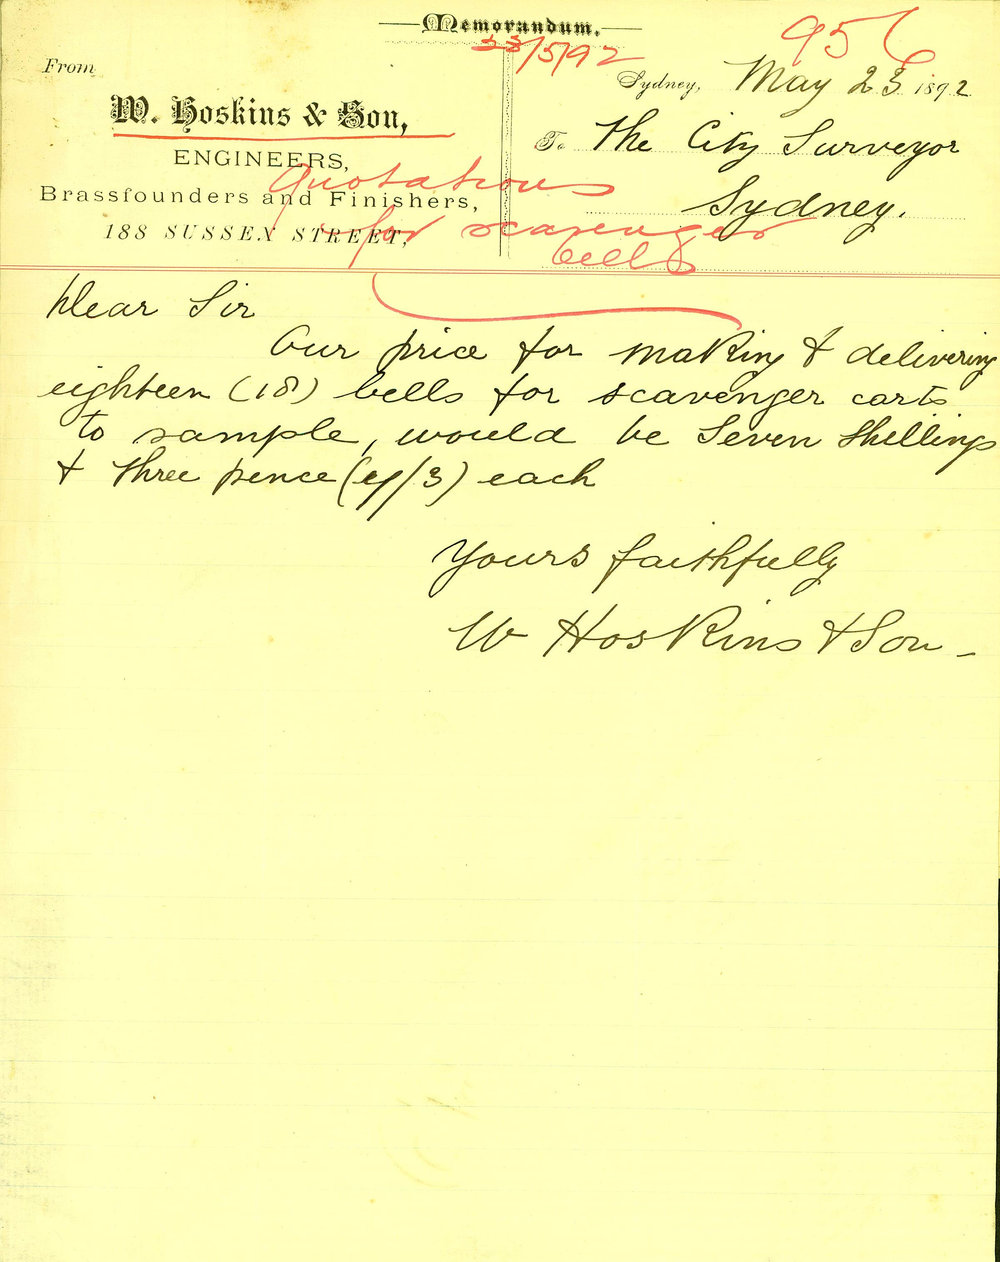 Memorandum.
23/5/92
956
From
Sydney, May 23 1892
W. Hoskins & Son,
To The City Surveyor
ENGINEERS,
Sydney.
Quotations
Brassfounders and Finishers,
188 SUSSEX STREET,
for scavenger
bells
Dear Sir
Our price for making & delivering
eighteen (18) bells for scavenger carts
to sample, would be Seven Shillings
& three pence (7/3) each
Yours faithfully
W Hoskins & Son